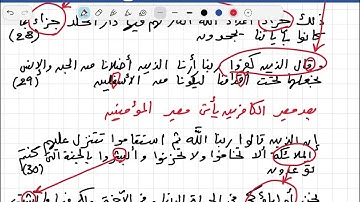 ذلك جزاء أعداء الله النار لهم فيها دار الخلد جزاء بما
كانوا بآياتنا يجحدون (28)
وقال الذين كفروا ربنا أرنا الذين أضلانا من الجن والإنس
نجعلهما تحت أقدامنا ليكونا من الأسفلين (29)
بعد مصير الكافرين يأتي مصير المؤمنين
إن الذين قالوا ربنا الله ثم استقاموا تتنزل عليهم
الملائكة ألا تخافوا ولا تحزنوا وأبشروا بالجنة التي كنتم
توعدون (30)
نحن أولياؤكم في الحياة الدنيا وفي الآخرة ولكم فيها